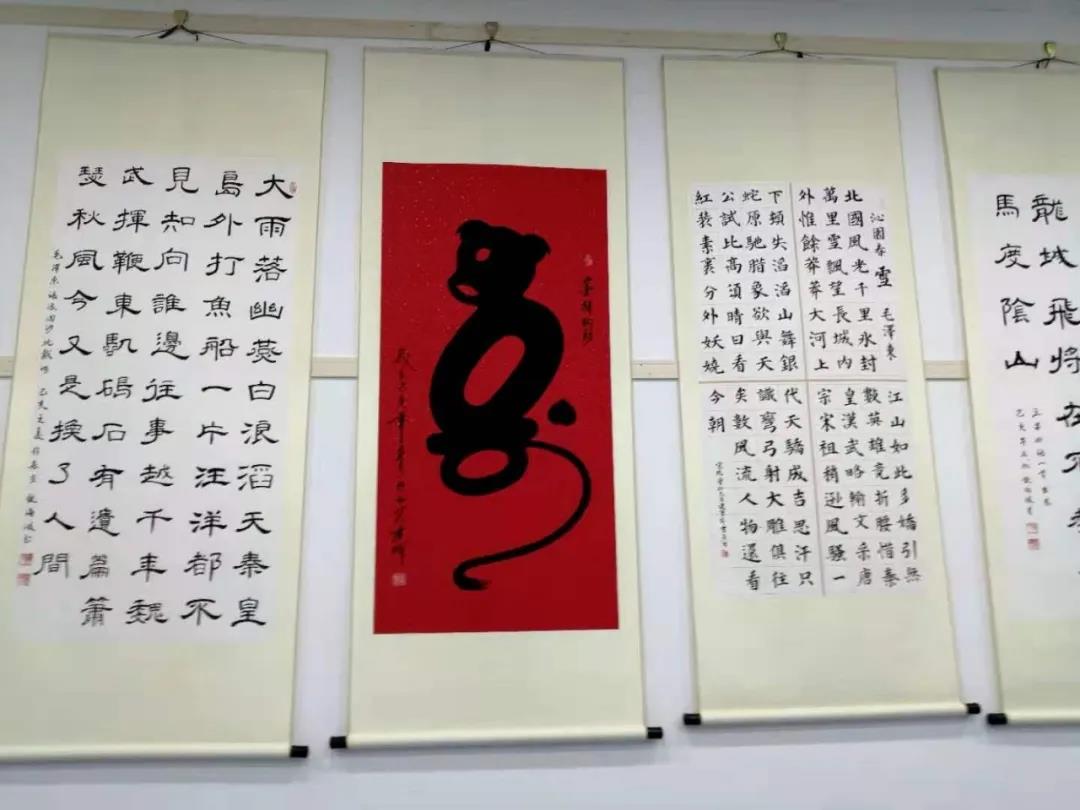 大雨落幽燕白浪滔天秦皇
島外打魚船一片汪洋都不
見知向誰邊往事越千年魏
武揮鞭東臨碣石有遺篇蕭
瑟秋風今又是換了人間
毛澤東 浪淘沙 北戴河 己亥之夏
沁園春 雪 毛澤東
北國風光千里冰封
萬里雪飄望長城內
外惟餘莽莽大河上
下頓失滔滔山舞銀
蛇原馳腊象欲與天
公試比高須晴日看
紅裝素裹分外妖嬈
江山如此多嬌引無
數英雄競折腰惜秦
皇漢武略輸文采唐
宗宋祖稍遜風騷一
代天驕成吉思汗只
識彎弓射大雕俱往
矣數風流人物還看
今朝
龍城飛將在不
馬度陰山